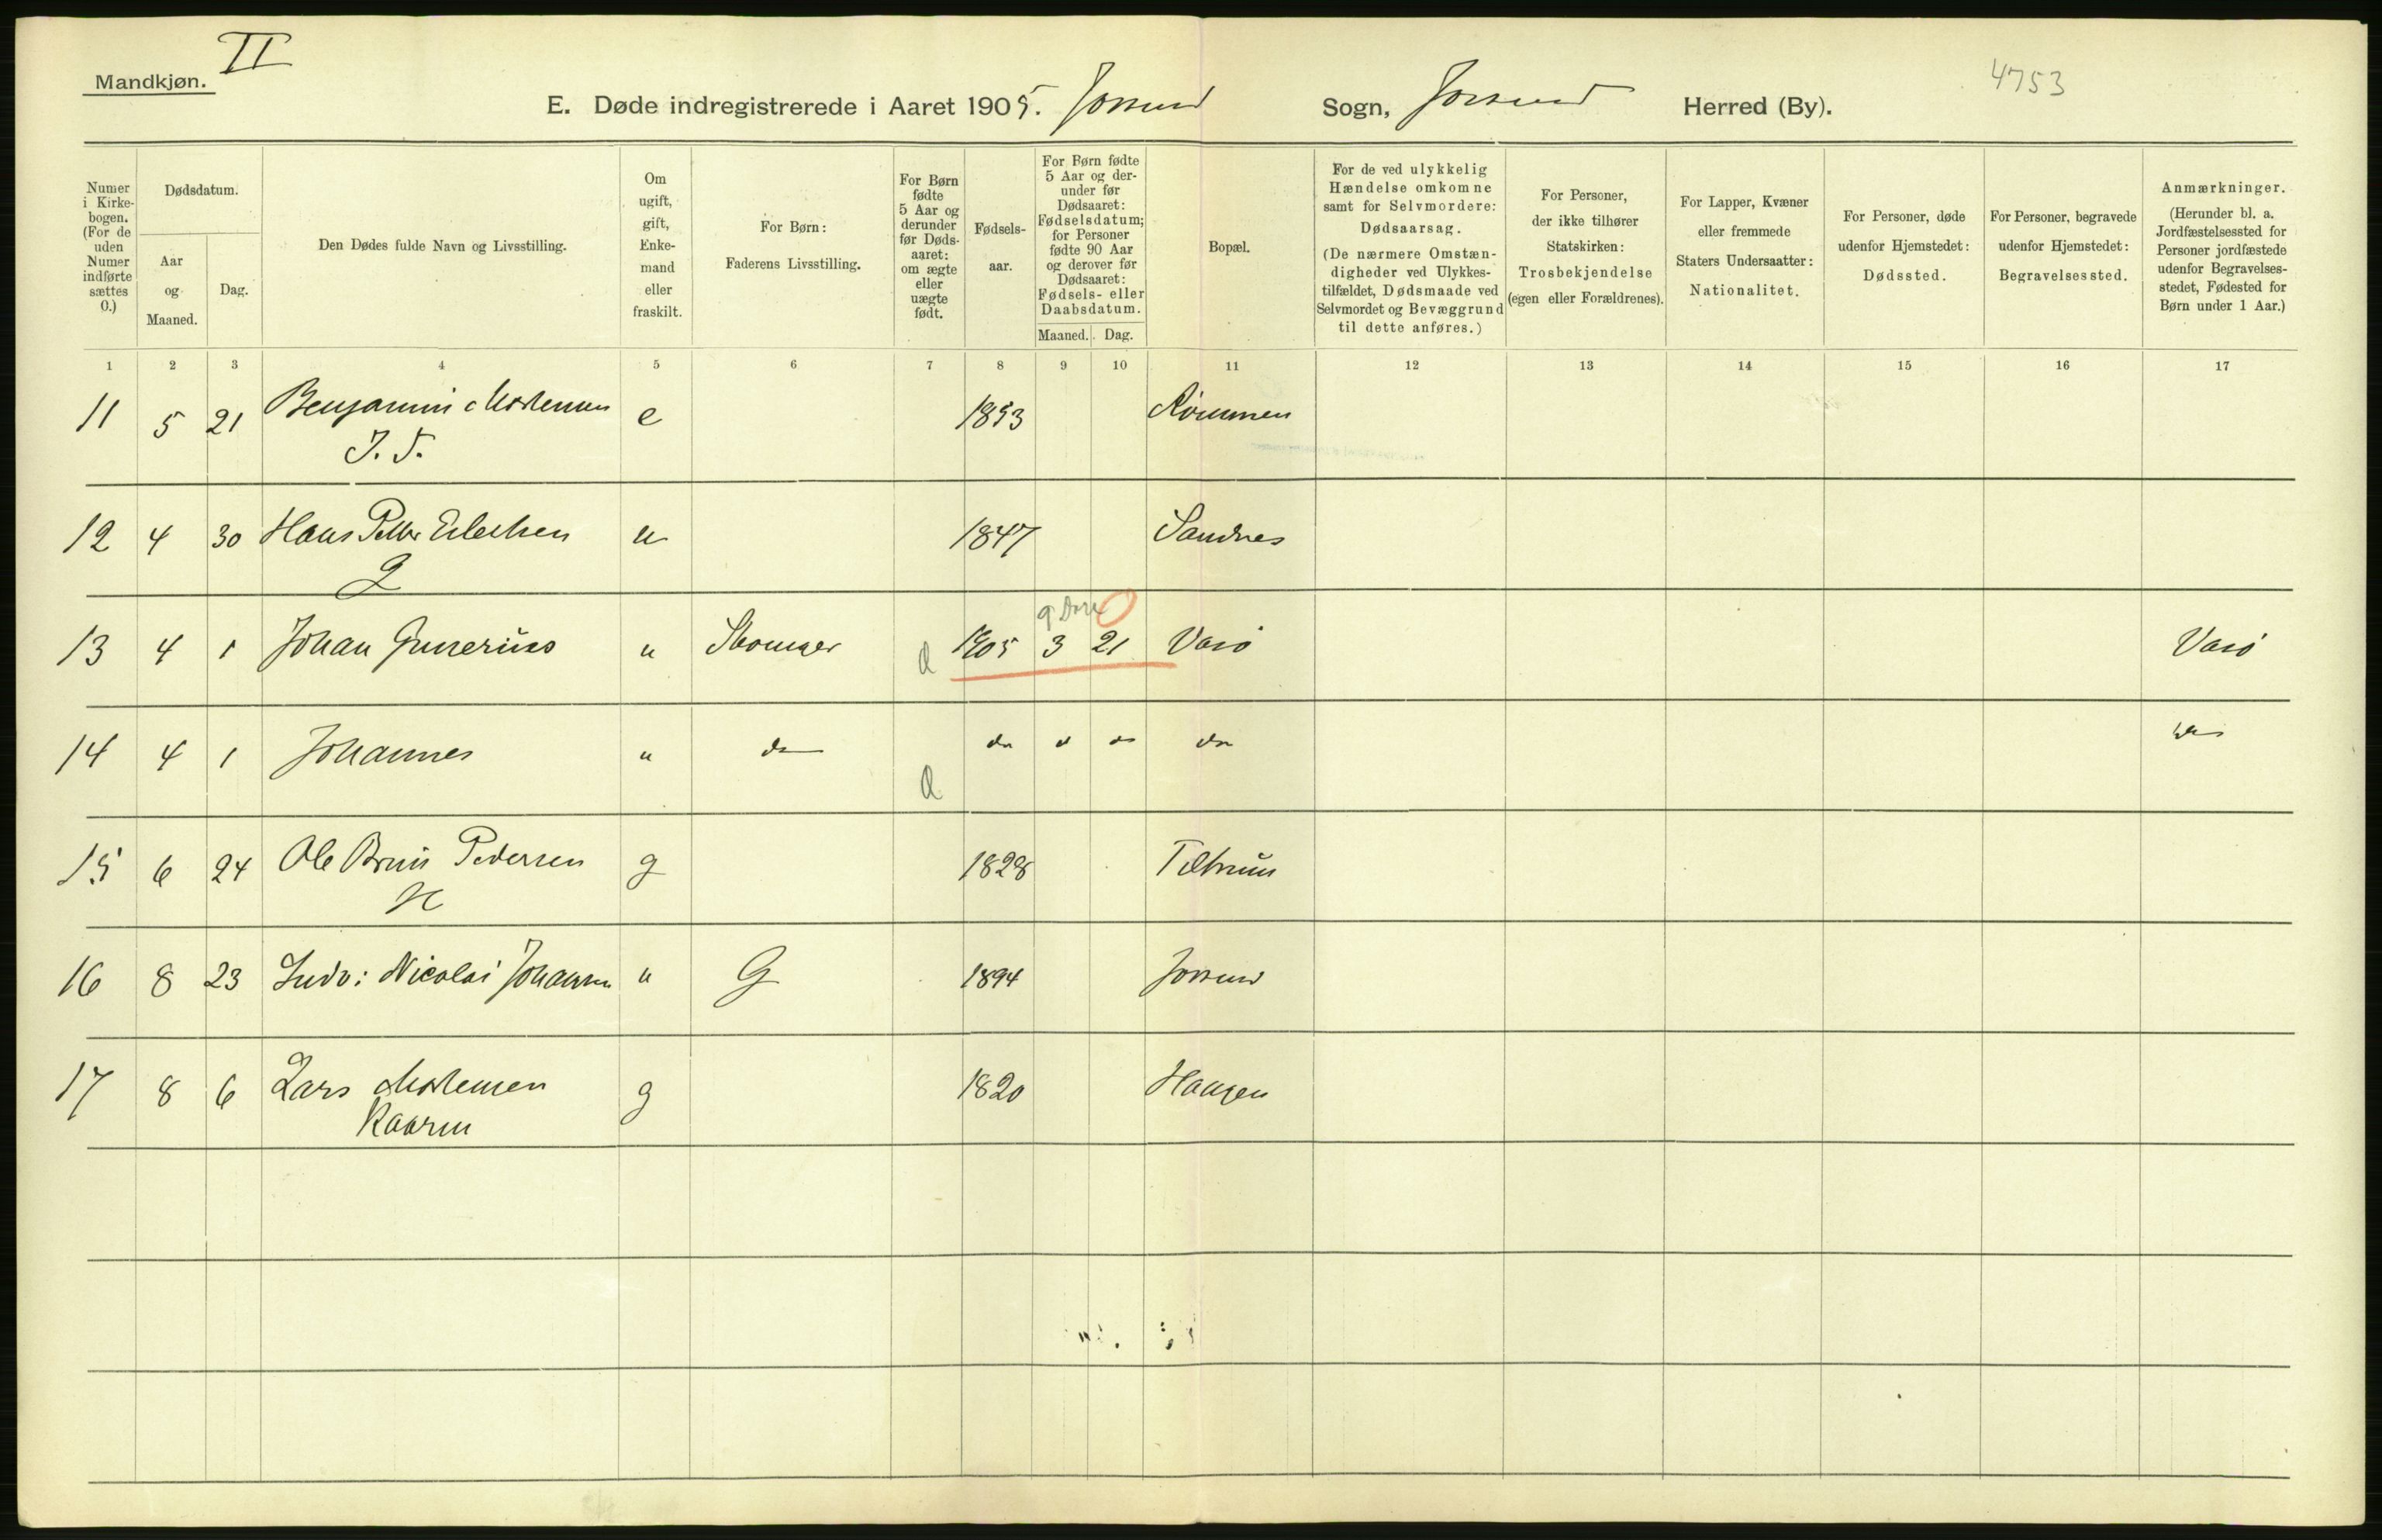 Mandkjøn.
II
4753
E. Døde indregistrerede i Aaret 1905. Jøssund Sogn, Jøssund Herred (By).
Numer i Kirke-bogen. (For de uden Numer indførte sættes 0.)
Dødsdatum.
Aar og Maaned.
Dag.
Den Dødes fulde Navn og Livsstilling.
Om ugift, gift, Enke-mand eller fraskilt.
For Børn: Faderens Livsstilling.
For Børn fødte 5 Aar og derunder før Døds-aaret: om ægte eller uægte født.
Fødsels-aar.
For Børn fødte 5 Aar og der-under før Dødsaaret: Fødselsdatum; for Personer fødte 90 Aar og derover før Dødsaaret: Fødsels- eller Daabsdatum.
Maaned. Dag.
Bopæl.
For de ved ulykkelig Hændelse omkomne samt for Selvmordere: Dødsaarsag. (De nærmere Omstæn-digheder ved Ulykkes-tilfældet, Dødsmaade ved Selvmordet og Bevæggrund til dette anføres.)
For Personer, der ikke tilhører Statskirken: Trosbekjendelse (egen eller Forældrenes).
For Lapper, Kvæner eller fremmede Staters Undersaatter: Nationalitet.
For Personer, døde udenfor Hjemstedet: Dødssted.
For Personer, begravede udenfor Hjemstedet: Begravelsessted.
Anmærkninger. (Herunder bl. a. Jordfæstelsessted for Personer jordfæstede udenfor Begravelses-stedet, Fødested for Børn under 1 Aar.)
1 2 3 4 5 6 7 8 9 10 11 12 13 14 15 16 17
11 5 21 Benjamin Mortensen e 1853
J. F.
12 4 30 Hans Petter u 1847 Sandnes
13 4 1 Johan Gunerius u d 1905 3 21 Vasø Vasø
14 4 1 Johannes u do d do do do do do
15 6 24 Ole Pedersen g 1828
16 8 23 Ludv: Nicolai Johansen u G 1894 Jøssund
17 8 6 Lars Mortensen g 1820 Haugen
Kaarm